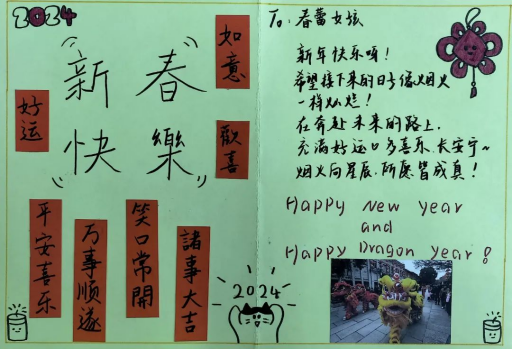 2024
新春
快樂
好运
如意
歡喜
平安喜乐
万事顺遂
笑口常開
諸事大吉
2024
To: 春蕾女孩
新年快乐呀!
希望接下来的日子像烟火
一样灿烂!
在奔赴未来的路上,
充满好运,多喜乐,长安宁~
烟火向星辰,所愿皆成真!
Happy New Year
and
Happy Dragon Year!